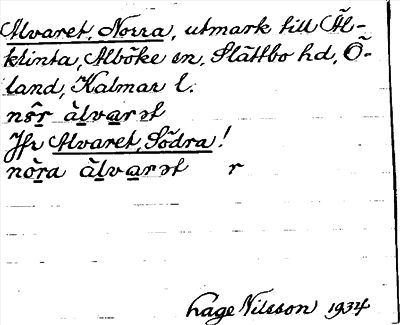 Alvaret, Norra, utmark till Äl-
klinta, Alböke sn, Slättbo hd, Ö-
land, Kalmar l.
nǫ̂r àlvarət
Jfr Alvaret, Södra!
nòra àlvarət r
Hage Nilsson 1934